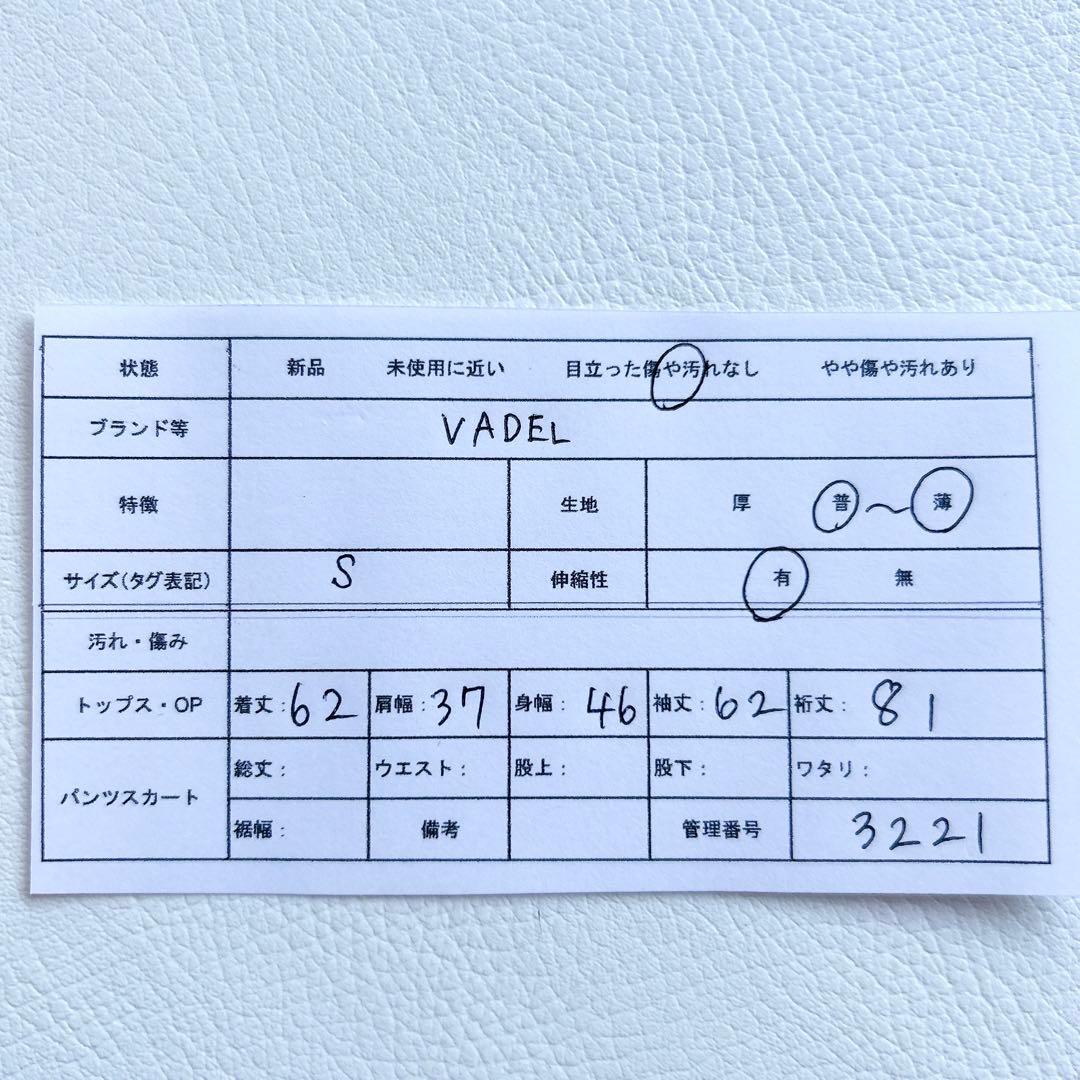 状態 新品 未使用に近い 目立った傷や汚れなし やや傷や汚れあり
ブランド等 VADEL
特徴 生地 厚 普〜薄
サイズ(タグ表記) S 伸縮性 有 無
汚れ・傷み
トップス・OP 着丈:62 肩幅:37 身幅:46 袖丈:62 裄丈:81
パンツスカート 総丈: ウエスト: 股上: 股下: ワタリ:
裾幅: 備考 管理番号 3221